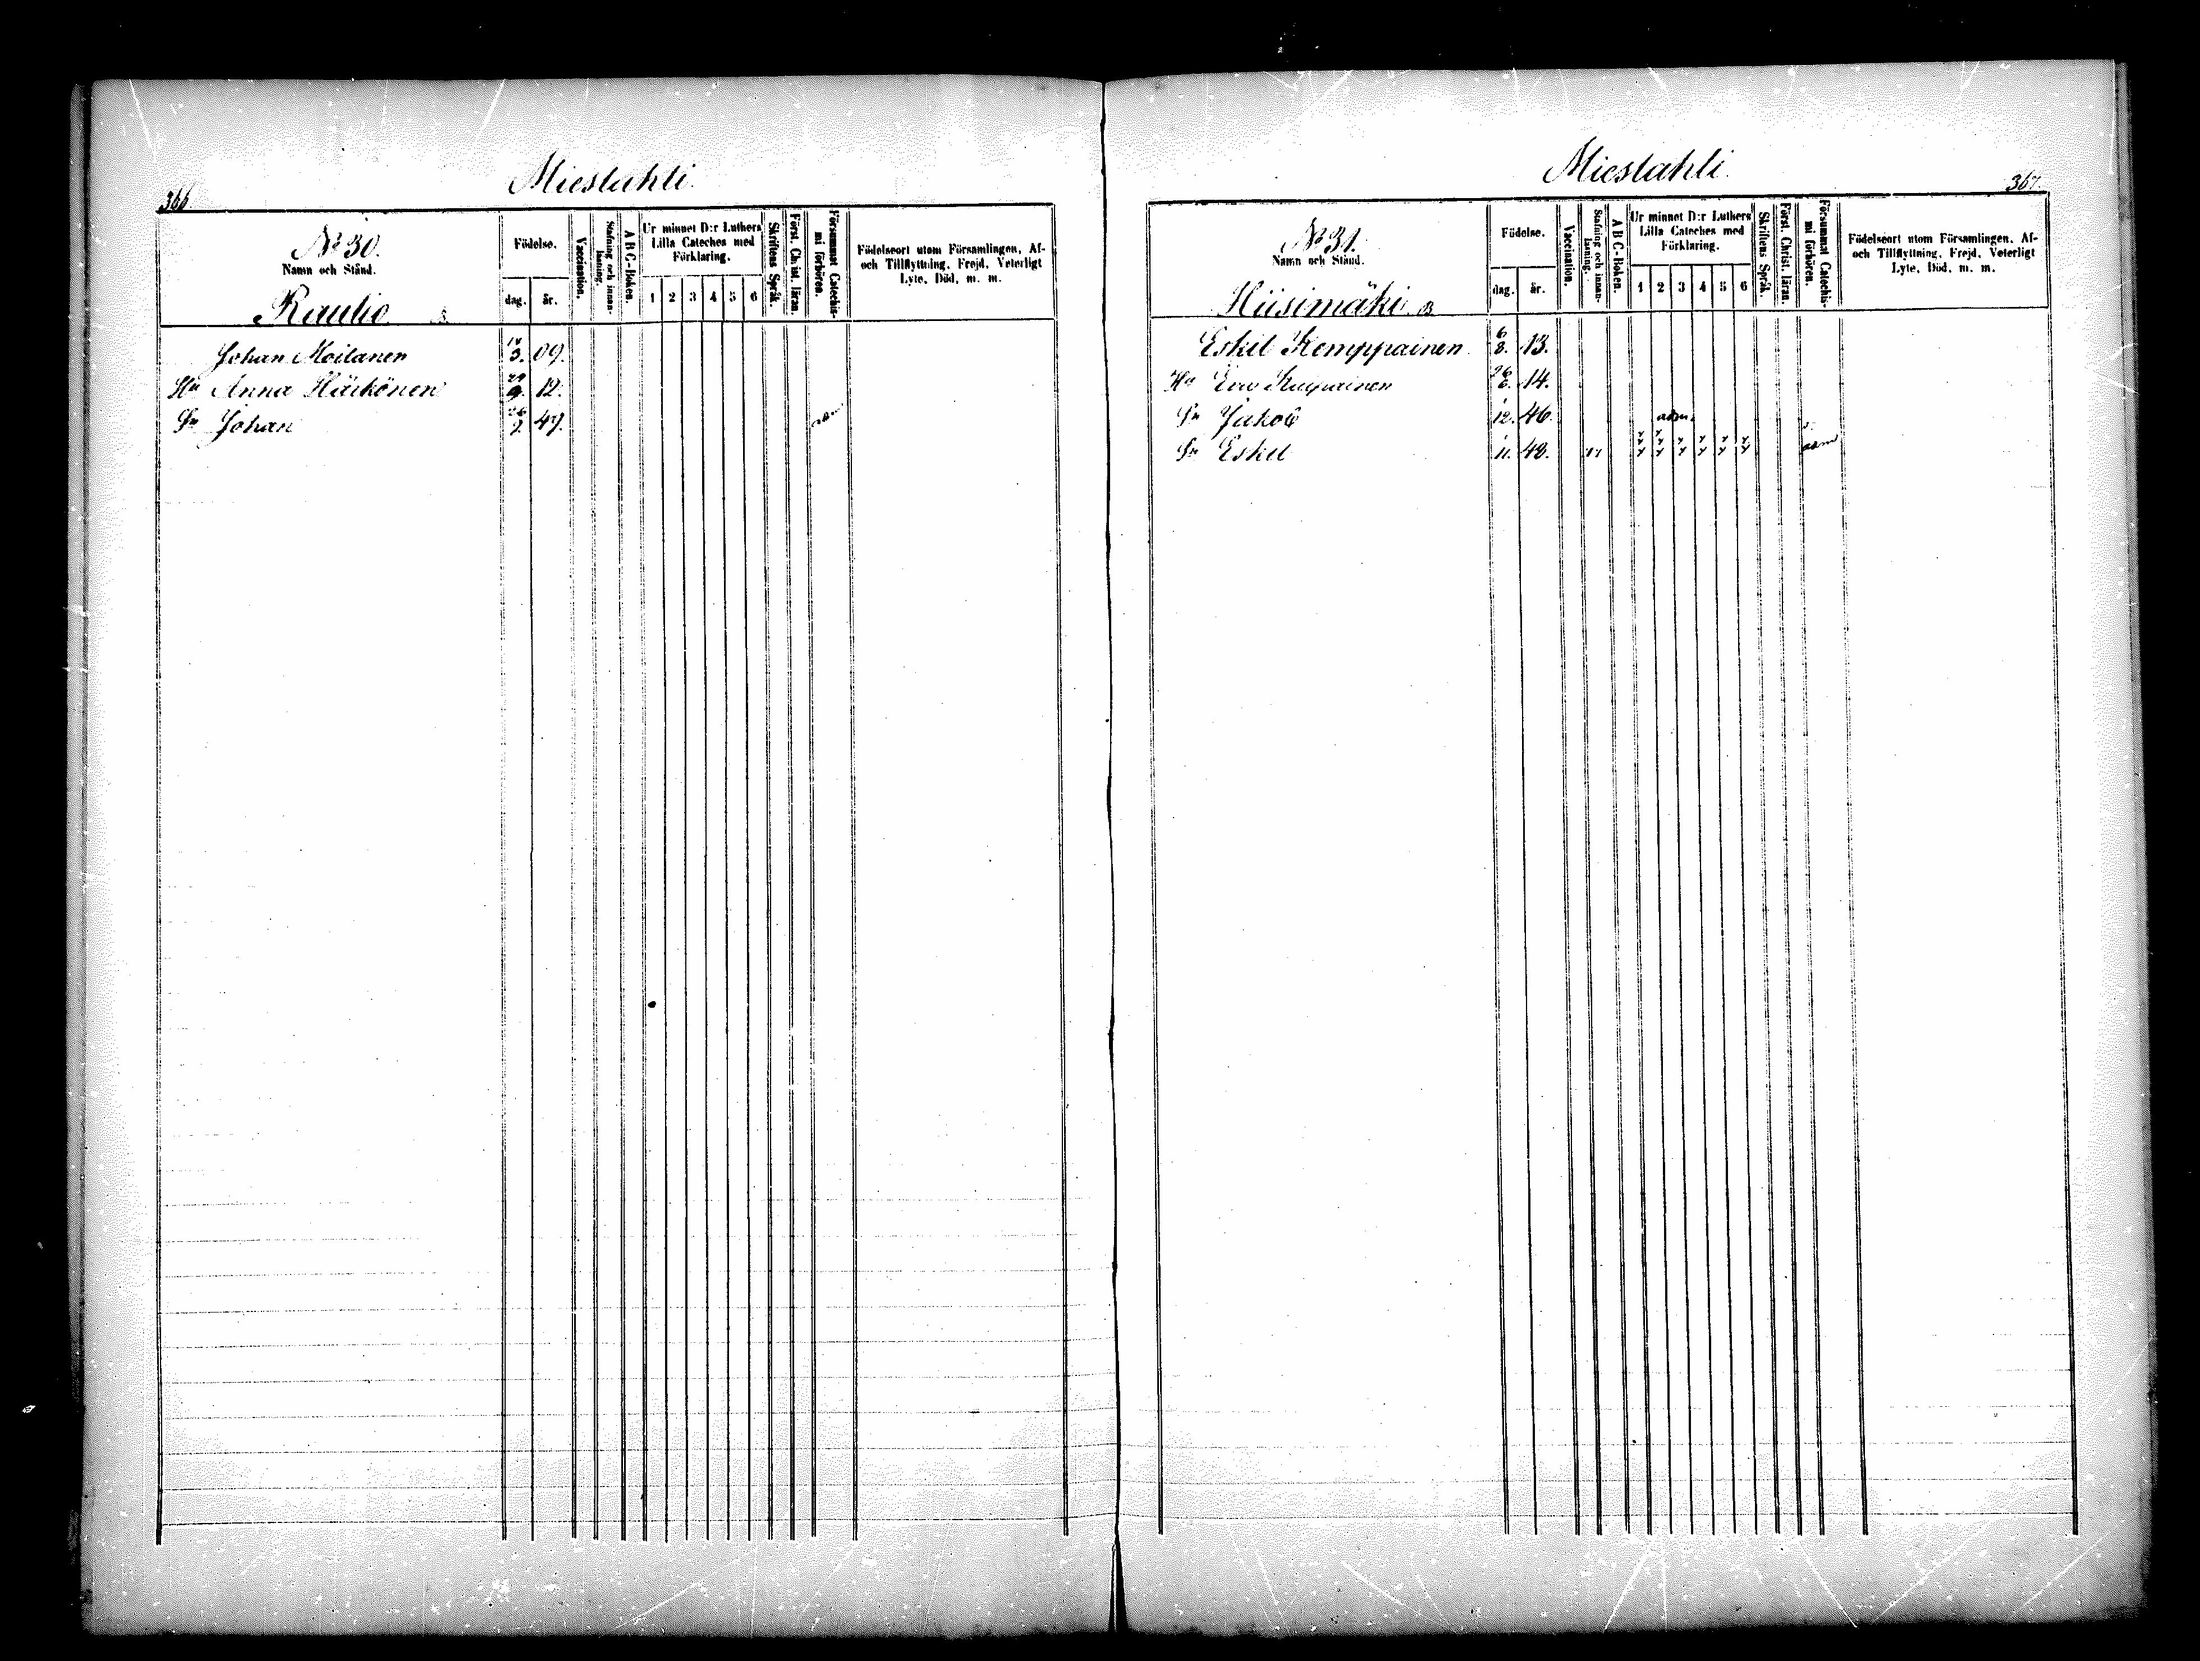 366.
Miestahti.
No 30.
Namn och Stånd.
Raulio
Födelse.
dag. år.
Vaccination.
Stafning och innanläsning.
A B C-Boken.
Ur minnet D:r Luthers
Lilla Cateches med
Förklaring.
1 2 3 4 5 6
Skriftens Språk.
Först. Christ. läran.
Försummat Catechismi förhören.
Födelseort utom Församlingen, Af-
och Tillflyttning, Frejd, Veterligt
Lyte, Död, m. m.
Johan Moilanen 3. 09.
Hu Anna Härkönen 29 9. 12.
Sn Johan 26 7. 47.
Miestahti.
367.
No 31.
Namn och Stånd.
Hiisimäki
Födelse.
dag. år.
Vaccination.
Stafning och innanläsning.
A B C-Boken.
Ur minnet D:r Luthers
Lilla Cateches med
Förklaring.
1 2 3 4 5 6
Skriftens Språk.
Först. Christ. läran.
Försummat Catechismi förhören.
Födelseort utom Församlingen, Af-
och Tillflyttning, Frejd, Veterligt
Lyte, Död, m. m.
Eskel Kemppainen 6 8. 13.
Hu 26 6. 14.
Sn Jakob 12. 46.
Sn Eskel 11. 48.